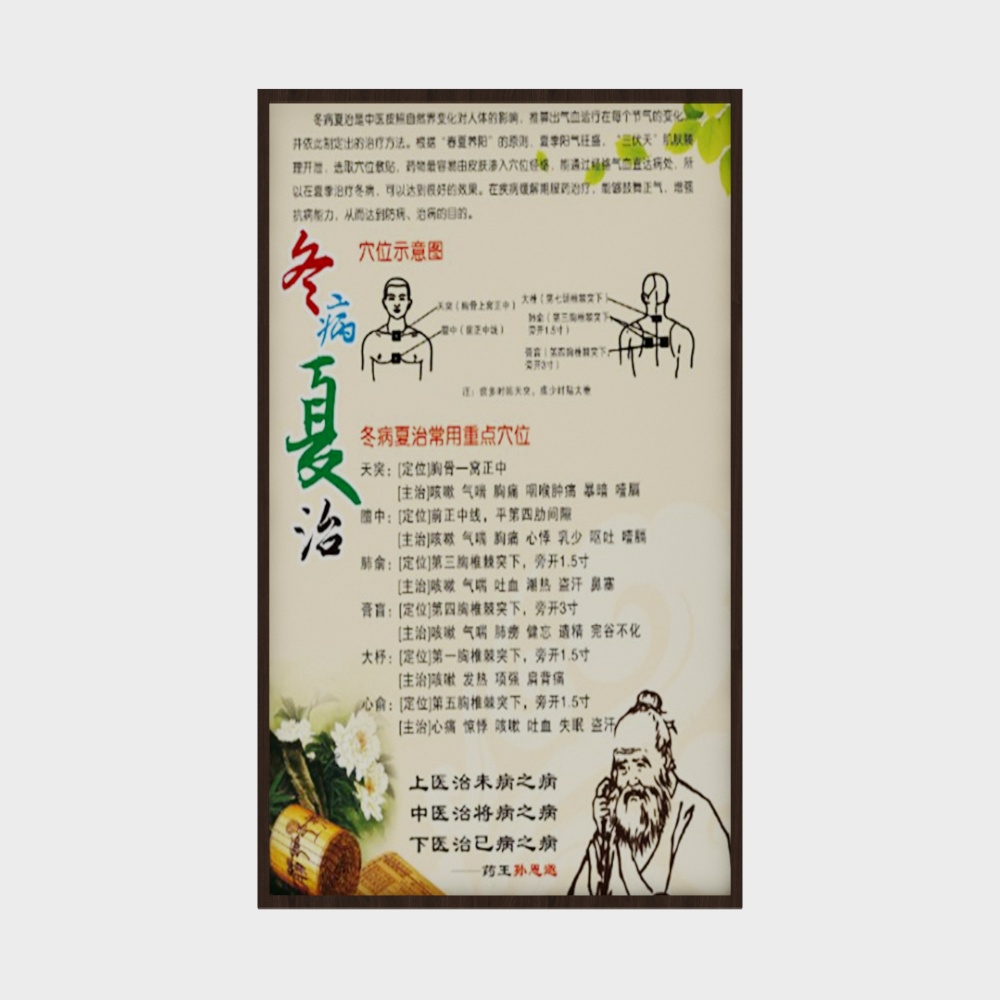 冬病夏治是中医按照自然界变化对人体的影响，推算出气血运行在每个节气的变化，
并依此制定出的治疗方法。根据“春夏养阳”的原则，夏季阳气旺盛，“三伏天”肌肤腠
理开泄，选取穴位敷贴，药物最容易由皮肤渗入穴位经络，能通过经络气血直达病处，所
以在夏季治疗冬病，可以达到很好的效果。在疾病缓解期服药治疗，能够鼓舞正气，增强
抗病能力，从而达到防病、治病的目的。
冬病夏治
穴位示意图
天突（胸骨上窝正中）
膻中（前正中线）
大椎（第七颈椎棘突下）
肺俞（第三胸椎棘突下，
旁开1.5寸）
膏肓（第四胸椎棘突下，
旁开3寸）
注：痰多时贴天突，痰少时贴大椎
冬病夏治常用重点穴位
天突：[定位]胸骨一窝正中
[主治]咳嗽 气喘 胸痛 咽喉肿痛 暴喑 噎膈
膻中：[定位]前正中线，平第四肋间隙
[主治]咳嗽 气喘 胸痛 心悸 乳少 呕吐 噎膈
肺俞：[定位]第三胸椎棘突下，旁开1.5寸
[主治]咳嗽 气喘 吐血 潮热 盗汗 鼻塞
膏肓：[定位]第四胸椎棘突下，旁开3寸
[主治]咳嗽 气喘 肺痨 健忘 遗精 完谷不化
大杼：[定位]第一胸椎棘突下，旁开1.5寸
[主治]咳嗽 发热 项强 肩背痛
心俞：[定位]第五胸椎棘突下，旁开1.5寸
[主治]心痛 惊悸 咳嗽 吐血 失眠 盗汗
上医治未病之病
中医治将病之病
下医治已病之病
——药王孙思邈